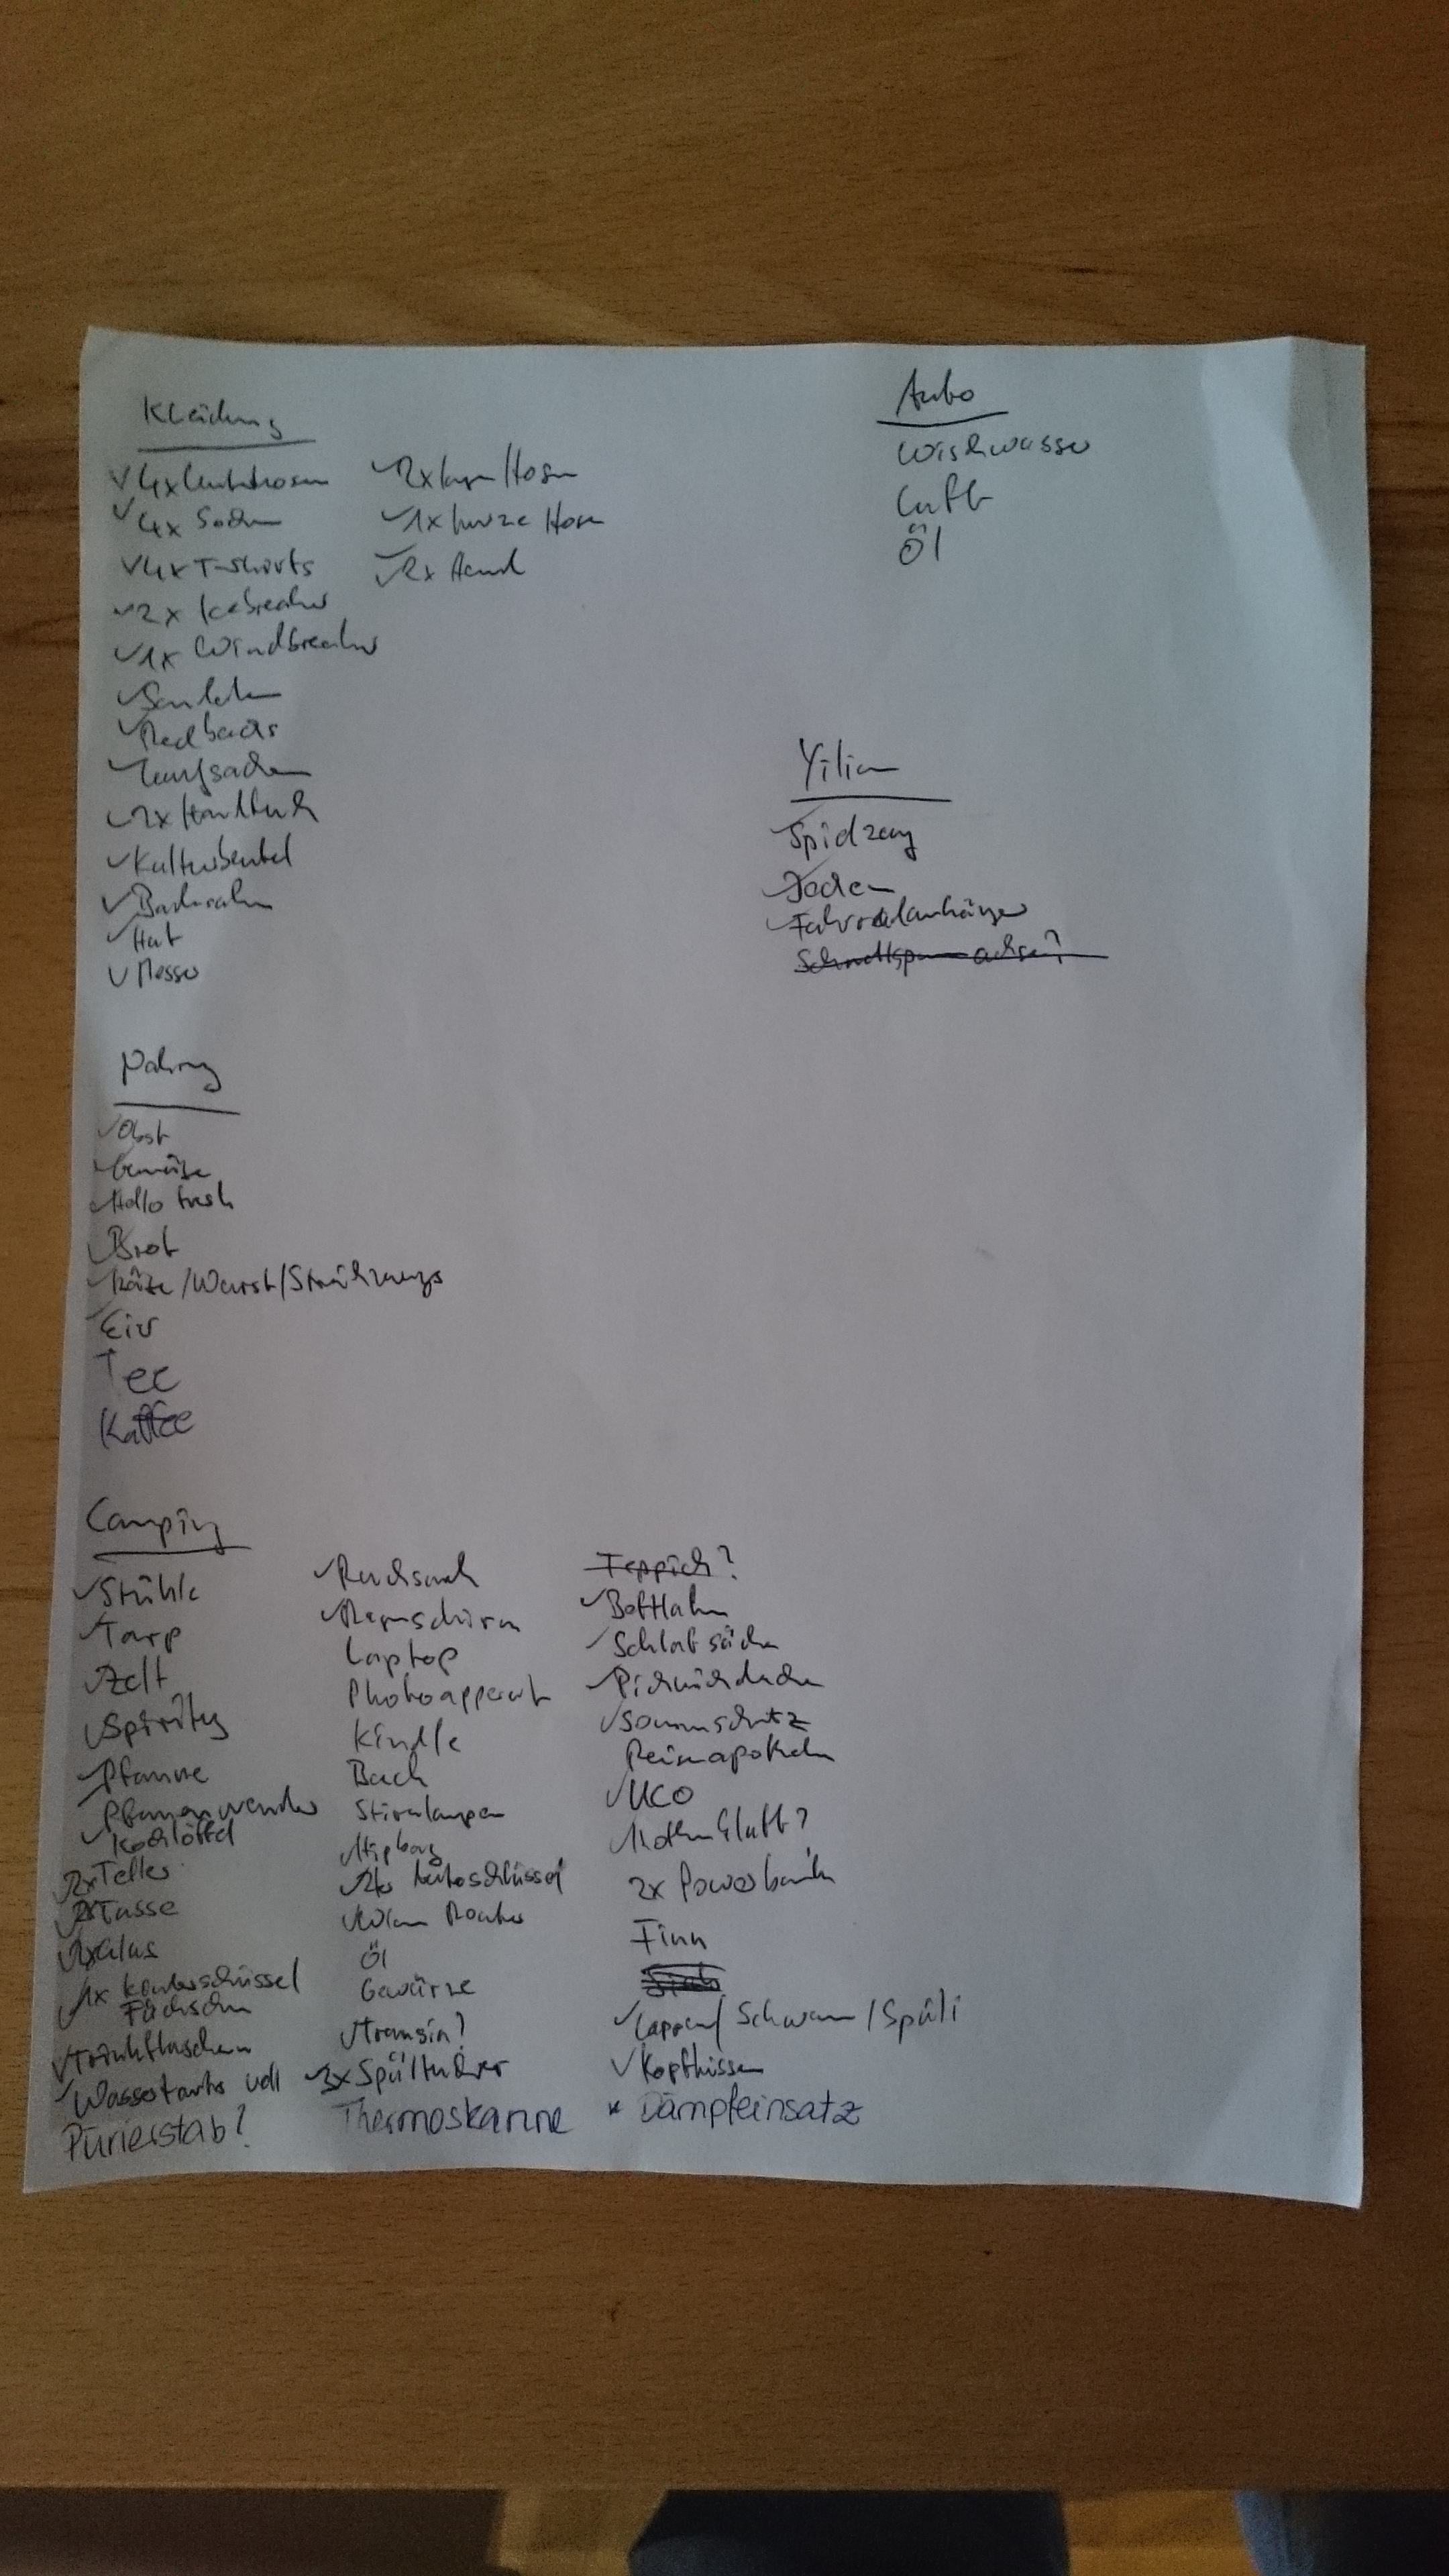 Kleidung
✓ 4x Unterhosen
✓ 4x Socken
✓ 4x T-Shirts
✓ 2x Icebreaker
✓ 1x Windbreaker
✓ Sandalen
✓ Redbacks
✓ Laufsachen
✓ 2x Handtuch
✓ Kulturbeutel
✓ Badesachen
✓ Hut
✓ Messer
✓ 2x lange Hosen
✓ 1x kurze Hose
✓ 2x Hemd
Auto
Wischwasser
Luft
Öl
Yilian
✓ Spielzeug
✓ Jacken
✓ Fahrradanhänger
Schnellspannachse?
Nahrung
✓ Obst
✓ Gemüse
✓ Hello fresh
✓ Brot
✓ Käse/Wurst/
✓ Eier
Tee
Kaffee
Camping
✓ Stühle
✓ Tarp
✓ Zelt
✓ Spiritus
✓ Pfanne
✓ Pfannenwender
✓ Kochlöffel
✓ 2x Teller
✓ 2x Tasse
✓ 2x Glas
✓ 1x
✓ Trinkflaschen
✓ Wassertanks voll
Pürierstab?
✓ Rucksack
✓ Regenschirm
Laptop
Photoapparat
Kindle
Buch
Stirnlampen
✓ Hipbag
✓ 2x Autoschlüssel
✓ Wlan Router
Öl
Gewürze
✓
✓ 3x Spültücher
Thermoskanne
Teppich?
✓ Bettlaken
✓ Schlafsäcke
✓ Picknickdecke
✓ Sonnenschutz
Reiseapotheke
✓ UCO
2x Powerbank
Finn
✓ Lappen/Schwamm/Spüli
✓ Kopfkissen
* Dämpfeinsatz